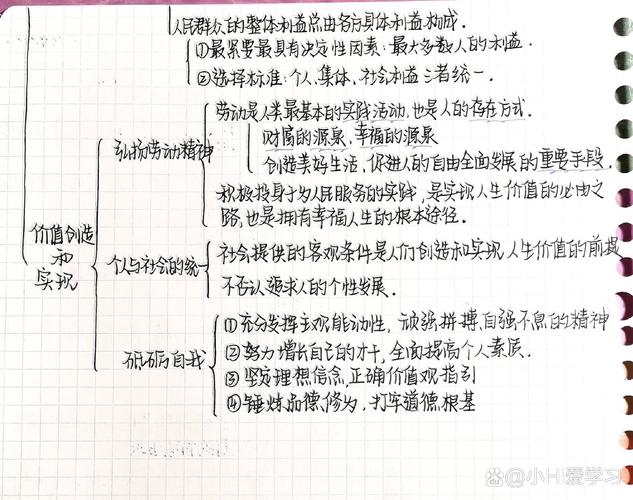 人民群众的整体利益总由各方具体利益构成.
①最紧要最具有决定性因素:最大多数人的利益.
②选择标准:个人、集体、社会利益三者统一.
劳动是人类最基本的实践活动,也是人的存在方式.
财富的源泉,幸福的源泉
弘扬劳动精神
创造美好生活,促进人的自由全面发展的重要手段.
积极投身于为人民服务的实践,是实现人生价值的必由之
路,也是拥有幸福人生的根本途径.
价值创造
和
实现
个人与社会的统一
社会提供的客观条件是人们创造和实现人生价值的前提
不否认追求人的个性发展.
①充分发挥主观能动性,顽强拼搏,自强不息的精神
砥砺自我
②努力增长自己的才干,全面提高个人素质.
③坚定理想信念,正确价值观指引
④锤炼品德修为,打牢道德根基
小H爱学习